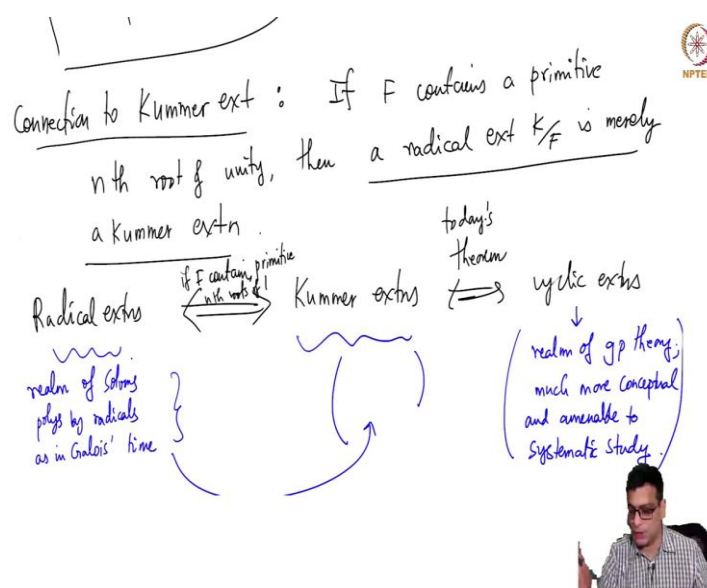 Connection to Kummer ext : If F contains a primitive
nth root of unity, then a radical ext K/F is merely
a Kummer extn.
today's
theorem
if F contains primitive
nth roots of 1
Radical extns ⟺ Kummer extns ⟺ cyclic extns
realm of solving
polys by radicals
as in Galois' time
realm of gp theory;
much more conceptual
and amenable to
systematic study.
NPTEL